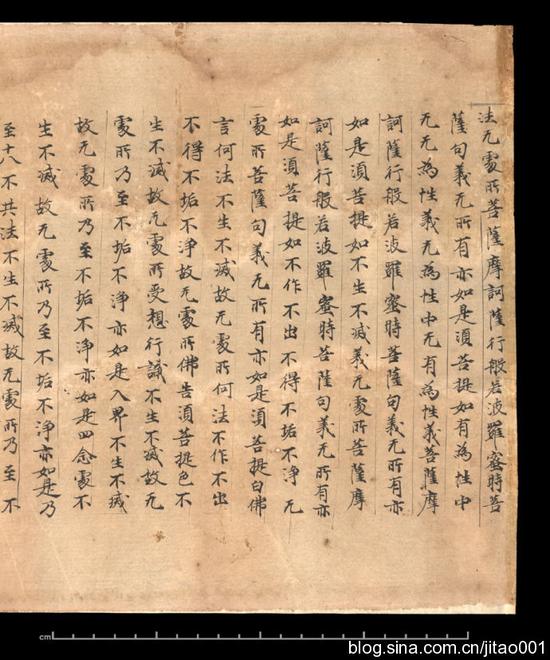 法无處所菩薩摩訶薩行般若波羅蜜時菩
薩句義无所有亦如是湏菩提如有為性中
无无為性義无為性中无有為性義菩薩摩
訶薩行般若波羅蜜時菩薩句義无所有亦
如是湏菩提如不生不滅義无處所菩薩摩
訶薩行般若波羅蜜時菩薩句義无所有亦
如是湏菩提如不作不出不得不垢不淨无
處所菩薩句義无所有亦如是湏菩提白佛
言何法不生不滅故无處所何法不作不出
不得不垢不淨故无處所佛告湏菩提色不
生不滅故无處所受想行識不生不滅故无
處所乃至不垢不淨亦如是入界不生不滅
故无處所乃至不垢不淨亦如是四念處不
生不滅故无處所乃至不垢不淨亦如是乃
至十八不共法不生不滅故无處所乃至不
cm
blog.sina.com.cn/jitao001